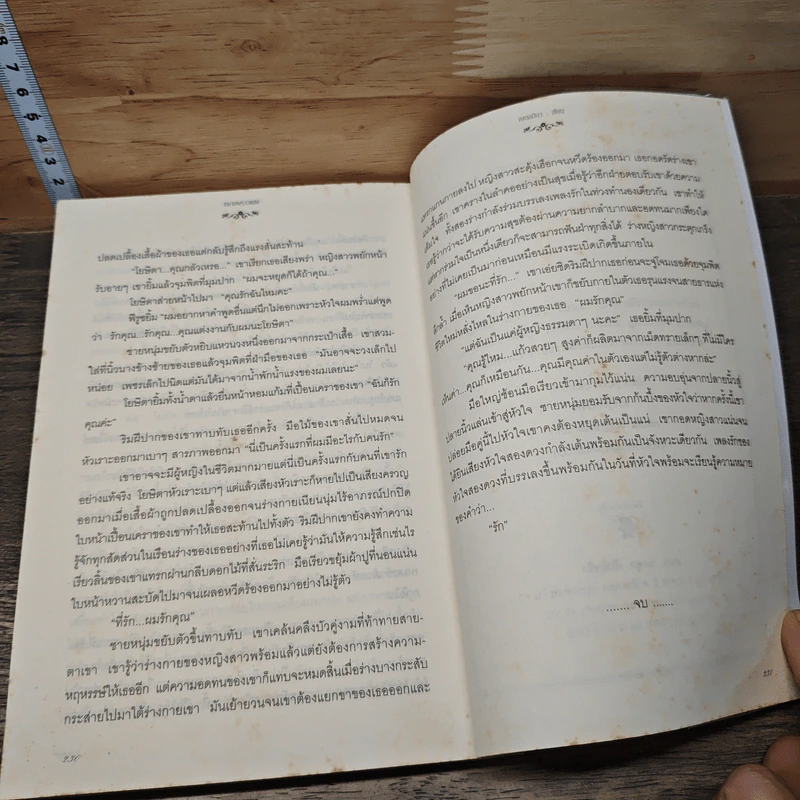 8
7
6
5
4
3
2
ปลดเปลื้องเสื้อผ้าของเธอแต่กลับรู้สึกถึงแรงสั่นสะท้าน
“โยษิตา...คุณกลัวเหรอ...” เขาเรียกเธอเสียงพร่า หญิงสาวพยักหน้า
รับอายๆ เขายิ้มแล้วจุมพิตที่มุมปาก “ผมจะหยุดก็ได้ถ้าคุณ...”
โยษิตาส่ายหน้าไปมา “คุณรักฉันไหมคะ”
พีรุชยิ้ม “ผมอยากหาคำพูดขึ้นแต่นึกไม่ออกเพราะหัวใจผมพร่ำแต่พูด
ว่า รักคุณ...รักคุณ...คุณแต่งงานกับผมนะโยษิตา”
ชายหนุ่มขยับตัวหยิบแหวนวงหนึ่งออกมาจากกระเป๋าเสื้อ เขาสวม-
ใส่ที่นิ้วนางข้างซ้ายของเธอแล้วจุมพิตที่ฝ่ามือของเธอ “มันอาจจะวงเล็กไป
หน่อย เพชรเล็กไปนิดแต่มันได้มาจากน้ำพักน้ำแรงของผมเลยนะ”
โยษิตายิ้มทั้งน้ำตาแล้วยื่นหน้าหอมแก้มที่เปื้อนเคราของเขา “ฉันก็รัก
คุณค่ะ”
ริมฝีปากของเขาทาบทับเธออีกครั้ง มือไม้ของเขาสั่นไปหมดจน
หัวเราะออกมาเบาๆ สารภาพออกมา “นี่เป็นครั้งแรกที่ผมมีอะไรกับคนรัก”
เขาอาจจะมีผู้หญิงในชีวิตมากมายแต่นี่เป็นครั้งแรกกับคนที่เขารัก
อย่างแท้จริง โยษิตาหัวเราะเบาๆ แต่แล้วเสียงหัวเราะก็หายไปเป็นเสียงครวญ
ออกมาเมื่อเสื้อผ้าถูกปลดเปลื้องออกจนร่างกายเนียนนุ่มไร้อาภรณ์ปกปิด
ใบหน้าเปื้อนเคราของเขาทำให้เธอสะท้านไปทั้งตัว ริมฝีปากเขายังคงทำความ
รู้จักทุกสัดส่วนในเรือนร่างของเธออย่างที่เธอไม่เคยรู้ว่ามันให้ความรู้สึกเช่นไร
เรียวลิ้นของเขาแทรกผ่านกลีบดอกไม้ที่สั่นระริก มือเรียวขยุ้มผ้าปูที่นอนแน่น
ใบหน้าหวานสะบัดไปมาจนเผลอหวีดร้องออกมาอย่างไม่รู้ตัว
“ที่รัก...ผมรักคุณ”
ชายหนุ่มขยับตัวขึ้นทาบทับ เขาเคล้นคลึงบัวคู่งามที่ท้าทายสาย-
ตาเขา เขารู้ว่าร่างกายของหญิงสาวพร้อมแล้วแต่ยังต้องการสร้างความ-
หฤหรรษ์ให้เธออีก แต่ความอดทนของเขาก็แทบจะหมดสิ้นเมื่อร่างบางกระสับ
กระส่ายไปมาใต้ร่างกายเขา มันเย้ายวนจนเขาต้องแยกขาของเธอออกและ
230
กายลงไป หญิงสาวสะดุ้งเฮือกจนหวีดร้องออกมา เธอกอดรัดร่างเขา
เขาครางในลำคออย่างเป็นสุขเมื่อรู้ว่าอีกฝ่ายตอบรับเขาด้วยความ
ทั้งสองร่างกำลังร่วมบรรเลงเพลงรักในท่วงทำนองเดียวกัน เขาทำให้
รู้ว่ากว่าจะได้รับความสุขต้องผ่านความยากลำบากและอดทนมากเพียงใด
รวมใจเป็นหนึ่งเดียวก็จะสามารถฟันฝ่าทุกสิ่งได้ ร่างหญิงสาวกระตุกเกร็ง
อย่างที่ไม่เคยเป็นมาก่อนเหมือนมีแรงระเบิดเกิดขึ้นภายใน
“ผมขอนะที่รัก...” เขาเอ่ยชิดริมฝีปากเธอก่อนจะจู่โจมเธอด้วยจุมพิต
ดูดล้ำ เมื่อเห็นหญิงสาวพยักหน้าเขาก็ขยับกายในตัวเธอรุนแรงจนสายธารแห่ง
ชีวิตใหม่หลั่งไหลในร่างกายของเธอ “ผมรักคุณ”
“แต่ฉันเป็นแค่ผู้หญิงธรรมดาๆ นะคะ” เธอยิ้มที่มุมปาก
“คุณรู้ไหม...แก้วสวยๆ สูงค่าก็ผลิตมาจากเม็ดทรายเล็กๆ ที่ไม่มีใคร
เห็นค่า...คุณก็เหมือนกัน...คุณมีคุณค่าในตัวเองแต่ไม่รู้ตัวต่างหากล่ะ”
มือใหญ่ช้อนมือเรียวเข้ามากุมไว้แน่น ความอบอุ่นจากปลายนิ้วสู่
ปลายนิ้วแล่นเข้าสู่หัวใจ ชายหนุ่มยอมรับจากก้นบึ้งของหัวใจว่าหากครั้งนี้เขา
ปล่อยมือคู่นี้ไปหัวใจเขาคงต้องหยุดเต้นเป็นแน่ เขากอดหญิงสาวแน่นจน
ได้ยินเสียงหัวใจสองดวงกำลังเต้นพร้อมกันเป็นจังหวะเดียวกัน เพลงรักของ
หัวใจสองดวงที่บรรเลงขึ้นพร้อมกันในวันที่หัวใจพร้อมจะเรียนรู้ความหมาย
ของคำว่า...
“รัก”
....... จบ .......
231